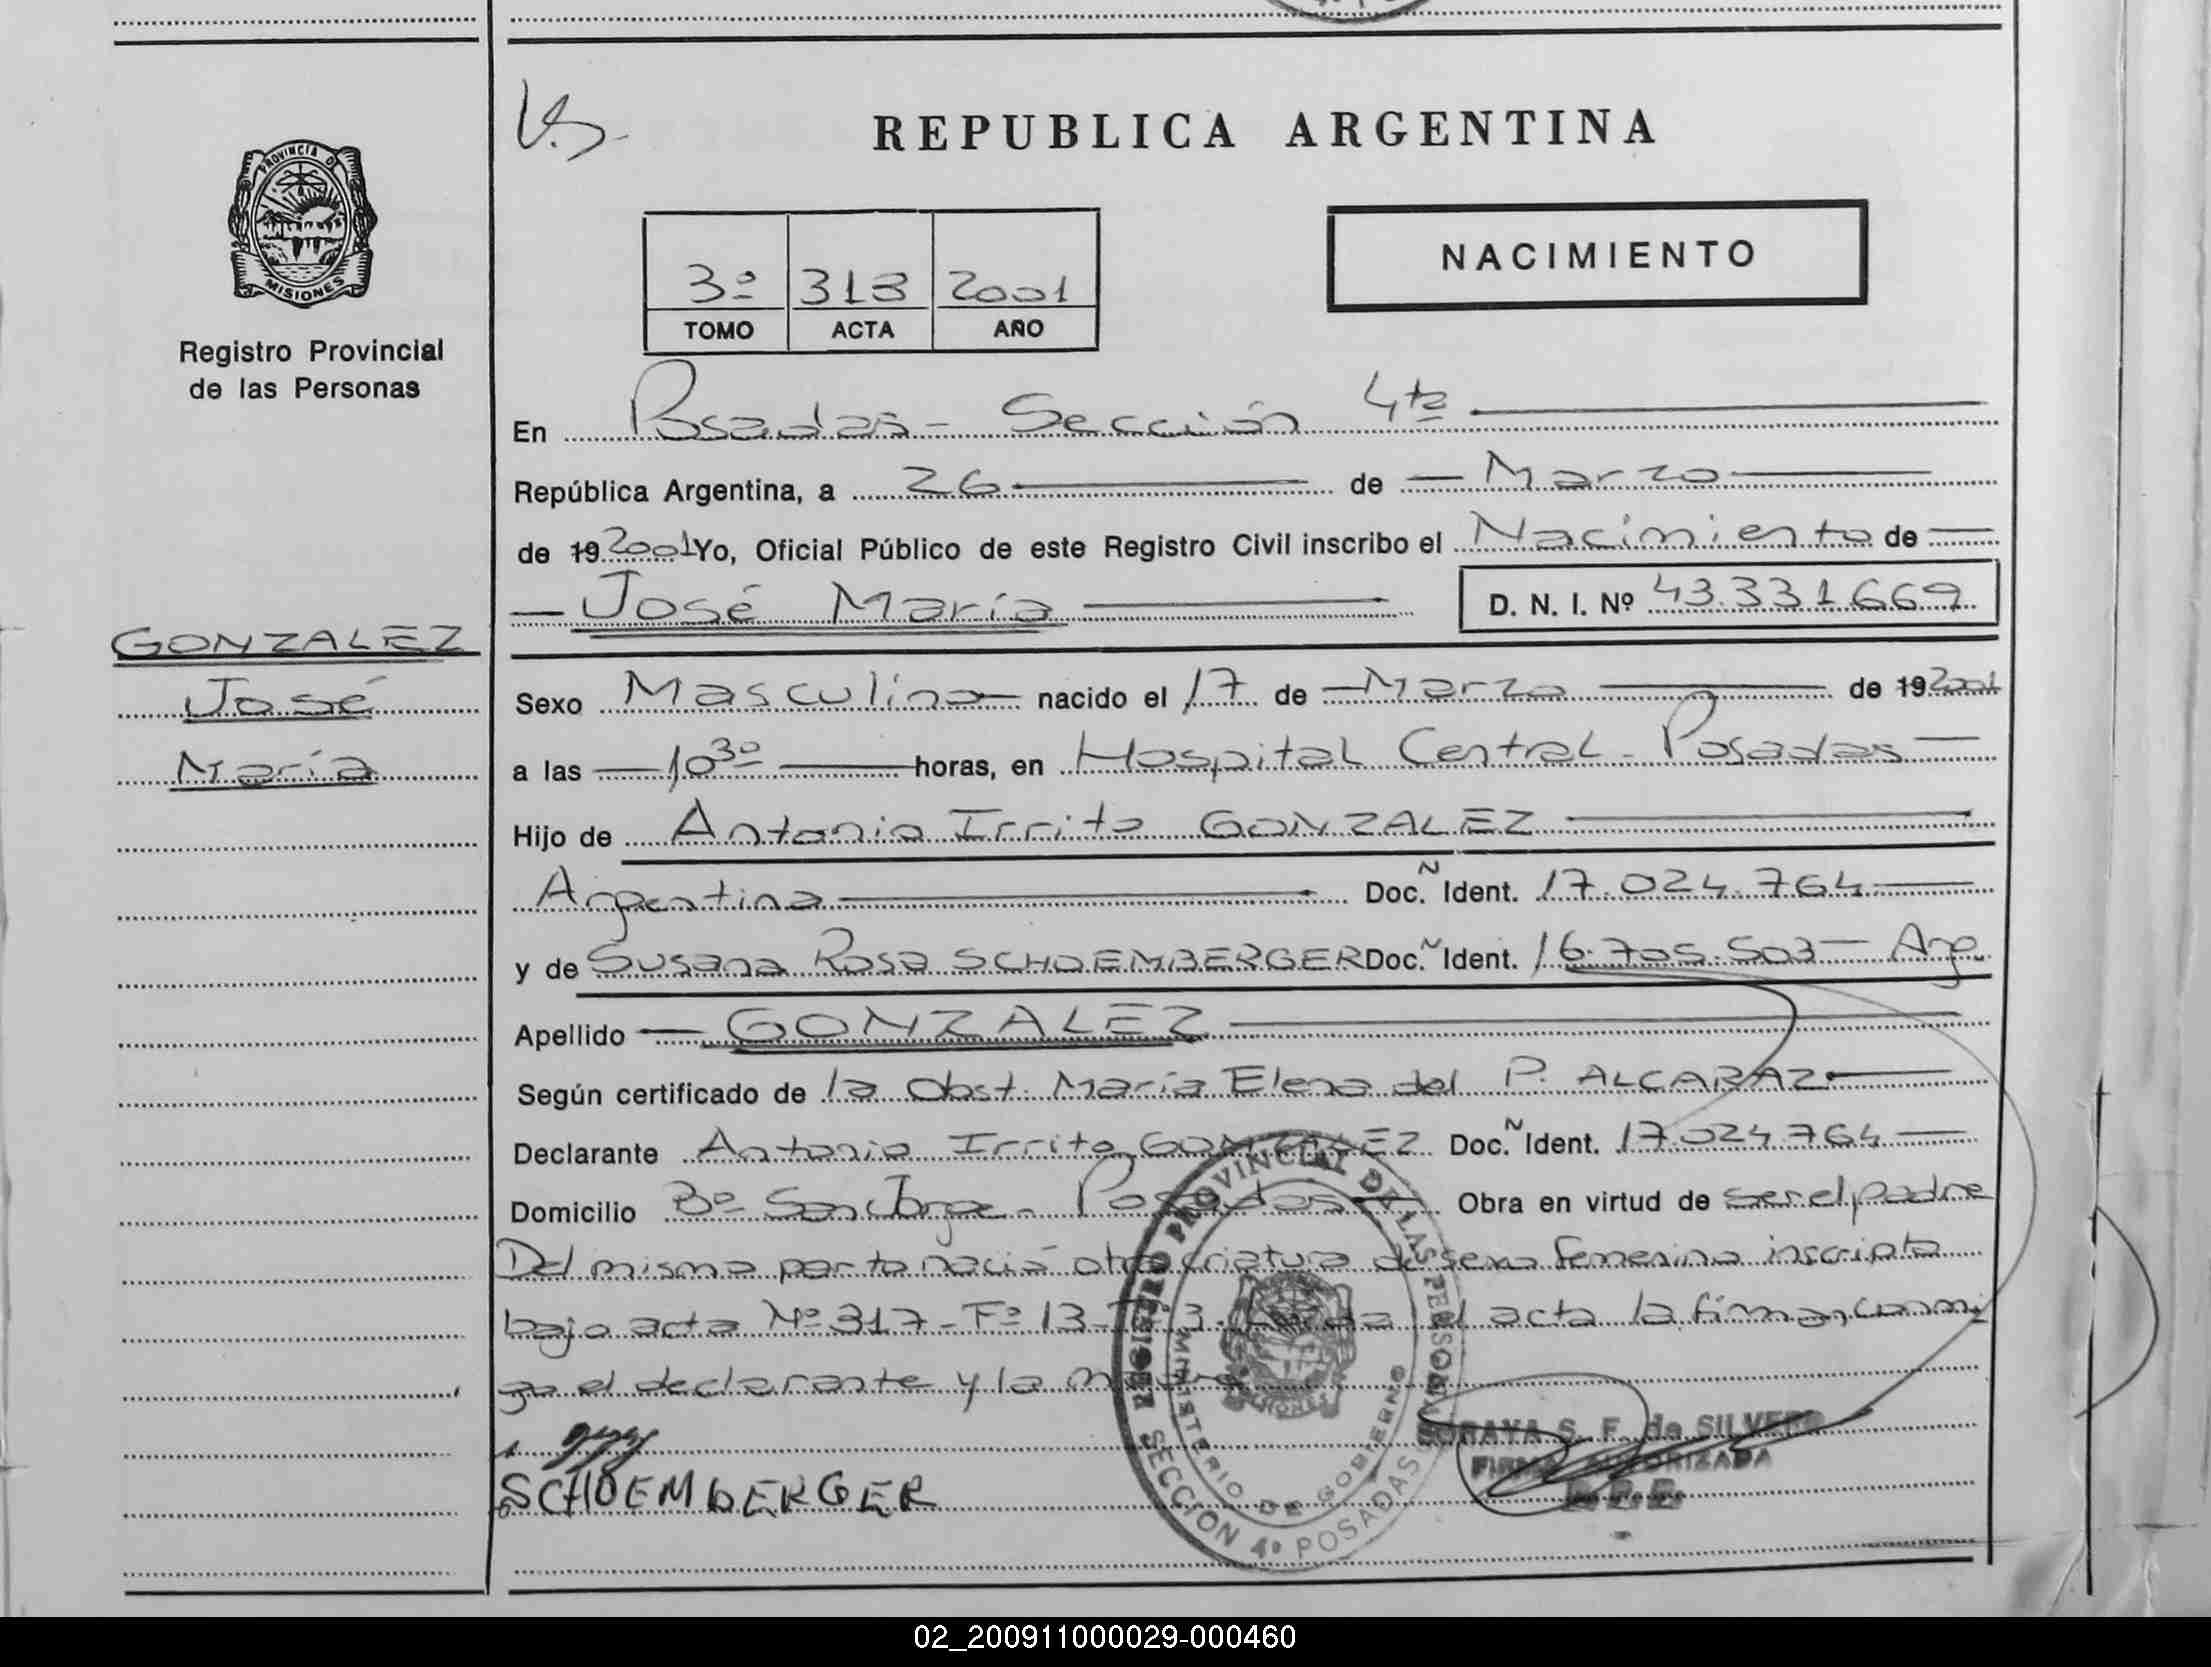 REPUBLICA ARGENTINA
PROVINCIA DE
MISIONES
Registro Provincial
de las Personas
NACIMIENTO
3º 318 2001
TOMO ACTA AÑO
En Posadas - Sección 4ta
República Argentina, a 26 de Marzo
de 19 2001 Yo, Oficial Público de este Registro Civil inscribo el Nacimiento de
José María D. N. I. Nº 43.331.669
GONZALEZ
José
María
Sexo Masculino nacido el 17 de Marzo de 19 2001
a las 10³⁰ horas, en Hospital Central - Posadas
Hijo de Antonio Irrito GONZALEZ
Argentina Doc. Ñ Ident. 17.024.764
y de Susana Rosa SCHOEMBERGER Doc. Ñ Ident. 16.705.503 - Arg.
Apellido GONZALEZ
Según certificado de la Obst. María Elena del P. ALCARAZ
Declarante Antonio Irrito GONZALEZ Doc. Ñ Ident. 17.024.764
Domicilio Bº San Jorge - Posadas Obra en virtud de ser el padre
Del mismo parto nació otra criatura de sexo femenino inscripta
bajo acta Nº 317 - Fº 13 - Tº 3. Leída el acta la firman conmi
go el declarante y la madre
SCHOEMBERGER
REGISTRO PROVINCIAL DE LAS PERSONAS
MINISTERIO DE GOBIERNO
SECCION 4º POSADAS
SORAYA S. F. de SILVERO
FIRMA AUTORIZADA
02_200911000029-000460